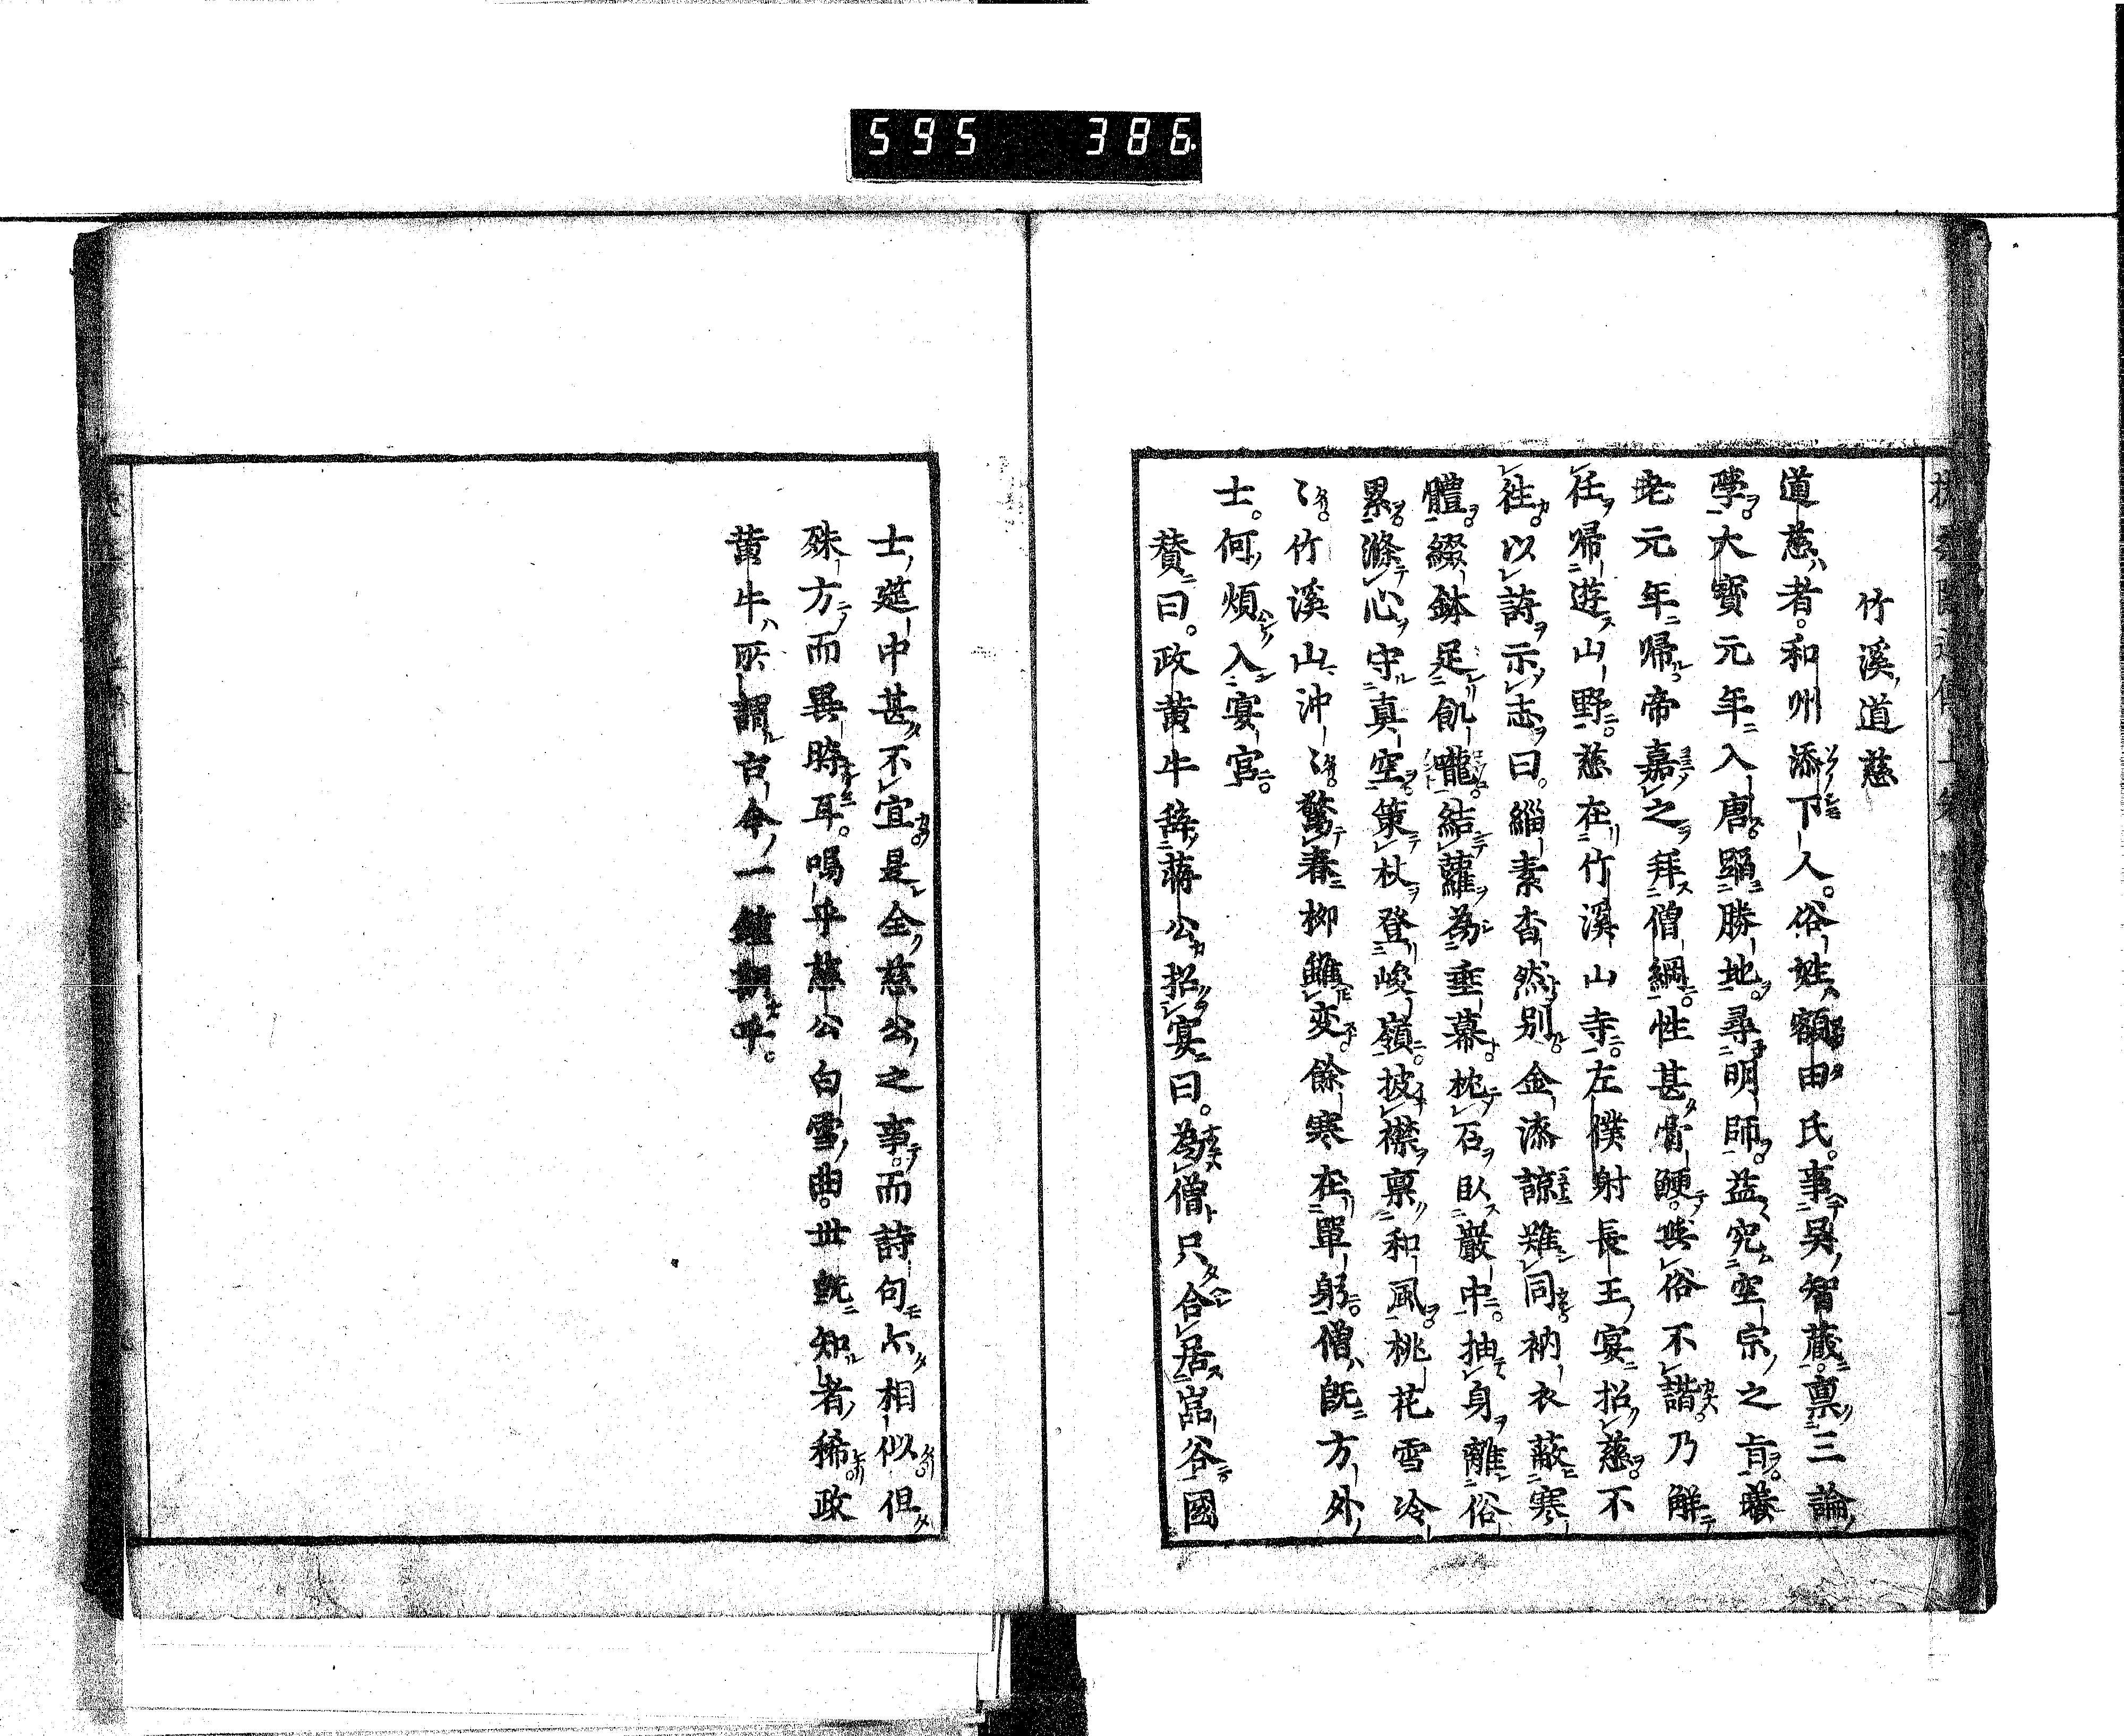 595 386
竹溪道慈
道慈者。和州添下人。俗姓額田氏。事吳智藏。稟三論
學。大寶元年入唐。踏勝地。尋明師。益究空宗之旨。養
老元年歸帝嘉之拜僧綱。性甚骨鯁。與俗不諧乃解
任歸遊山野。慈在竹溪山寺。左僕射長王宴招慈。不
往。以詩示志曰。緇素杳然別。金漆諒難同。衲衣蔽寒
體。綴鉢足飢嚨。結蘿為垂幕。枕石臥巖中。抽身離俗
累。滌心守真空。策杖登峻嶺。披襟稟和風。桃花雪冷
〻。竹溪山沖〻。驚春柳雖变。餘寒在單躬。僧既方外
士。何煩入宴宮。
賛曰。政黃牛辞蔣公招宴曰。為僧只合居嵓谷。國
士筵中甚不宜是全慈公之事。而詩句亦相似但
殊方而異時耳。嗚乎慈公白雪曲。世既知者稀。政
黃牛所謂古今一鍾期乎。